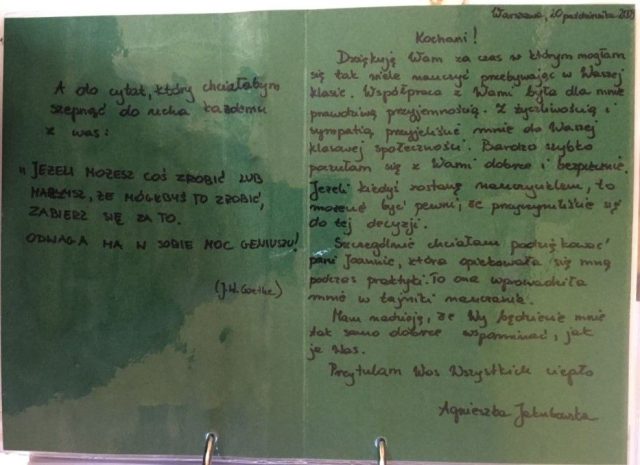 A oto cytat, który chciałabym
szepnąć do ucha każdemu
z was:
"JEŻELI MOŻESZ COŚ ZROBIĆ LUB
MARZYSZ, ŻE MÓGŁBYŚ TO ZROBIĆ,
ZABIERZ SIĘ ZA TO.
ODWAGA MA W SOBIE MOC GENIUSZU!
(J.W. Goethe)
Warszawa, 20 października
Kochani!
Dziękuję Wam za czas w którym mogłam
się tak wiele nauczyć przebywając w Waszej
klasie. Współpraca z Wami była dla mnie
prawdziwą przyjemnością. Z życzliwością i
sympatią przyjęliście mnie do Waszej
klasowej społeczności. Bardzo szybko
poczułam się z Wami dobrze i bezpiecznie.
Jeżeli kiedyś zostanę nauczycielem, to
możecie być pewni, że przyczyniliście się
do tej decyzji.
Szczególnie chciałam podziękować
pani Joannie, która opiekowała się mną
podczas praktyki. To ona wprowadziła
mnie w tajniki nauczania.
Mam nadzieję, że Wy będziecie mnie
tak samo dobrze wspominać, jak
ja Was.
Przytulam Was Wszystkich ciepło
Agnieszka Jakubowska